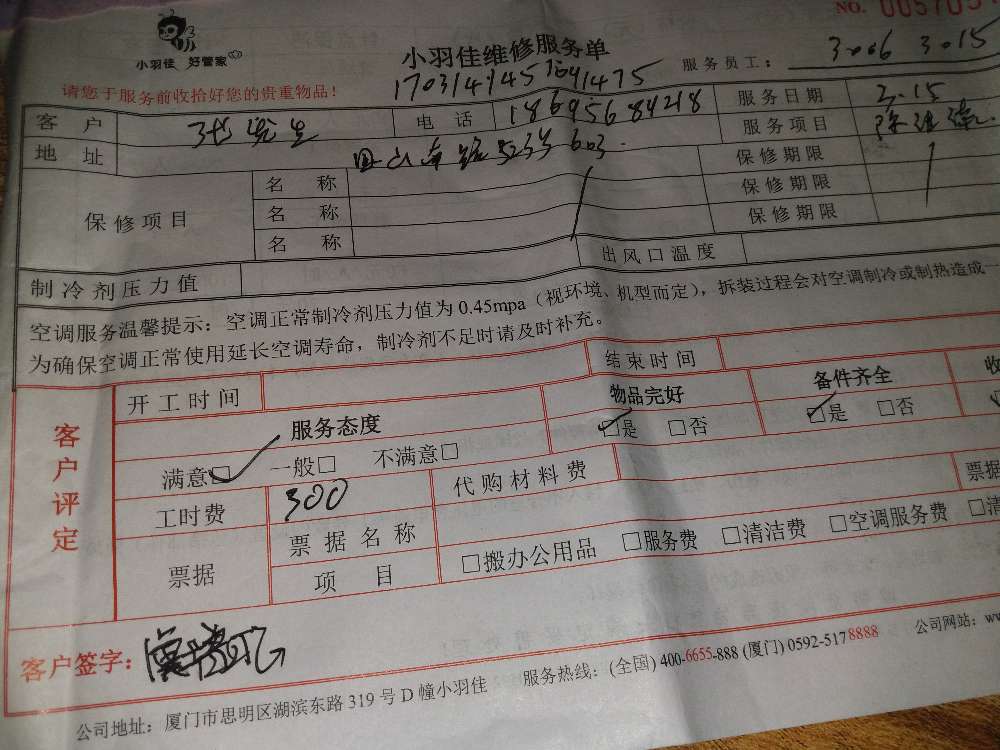 NO. 005705
小羽佳 好管家
小羽佳维修服务单
服务员工： 3006 3015
请您于服务前收拾好您的贵重物品！
客户 张先生 电话 18695684218 服务日期 2.15
地址 523号 603 服务项目
保修项目 名称 保修期限
名称 保修期限
名称 保修期限
制冷剂压力值 出风口温度
空调服务温馨提示：空调正常制冷剂压力值为0.45mpa（视环境、机型而定），拆装过程会对空调制冷或制热造成一
为确保空调正常使用延长空调寿命，制冷剂不足时请及时补充。
客户评定
开工时间 结束时间
服务态度 物品完好 备件齐全 收
满意□ 一般□ 不满意□ □是 □否 □是 □否
工时费 300 代购材料费
票据 票据名称 票据
项目 □搬办公用品 □服务费 □清洁费 □空调服务费 □清
客户签字：
公司地址：厦门市思明区湖滨东路319号D幢小羽佳 服务热线：(全国) 400-6655-888 (厦门) 0592-5178888 公司网站：ww